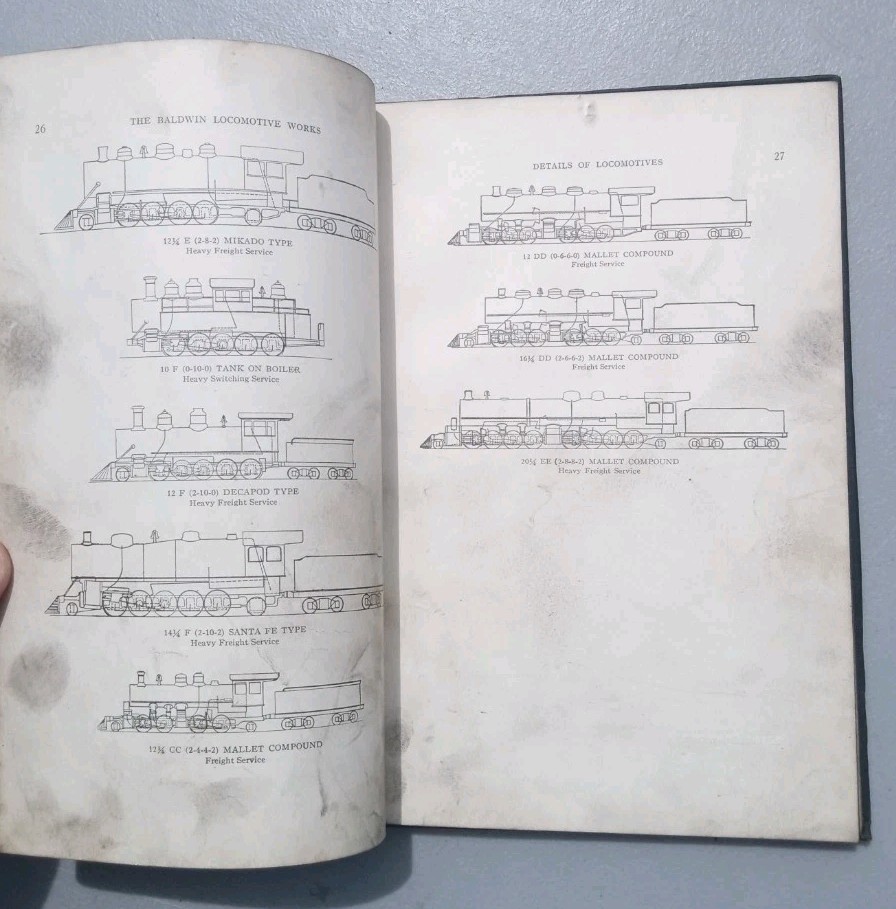 26
THE BALDWIN LOCOMOTIVE WORKS
12¼ E (2-8-2) MIKADO TYPE
Heavy Freight Service
10 F (0-10-0) TANK ON BOILER
Heavy Switching Service
12 F (2-10-0) DECAPOD TYPE
Heavy Freight Service
14¼ F (2-10-2) SANTA FE TYPE
Heavy Freight Service
12¼ CC (2-4-4-2) MALLET COMPOUND
Freight Service
DETAILS OF LOCOMOTIVES
27
12 DD (0-6-6-0) MALLET COMPOUND
Freight Service
16¼ DD (2-6-6-2) MALLET COMPOUND
Freight Service
20¼ EE (2-8-8-2) MALLET COMPOUND
Heavy Freight Service